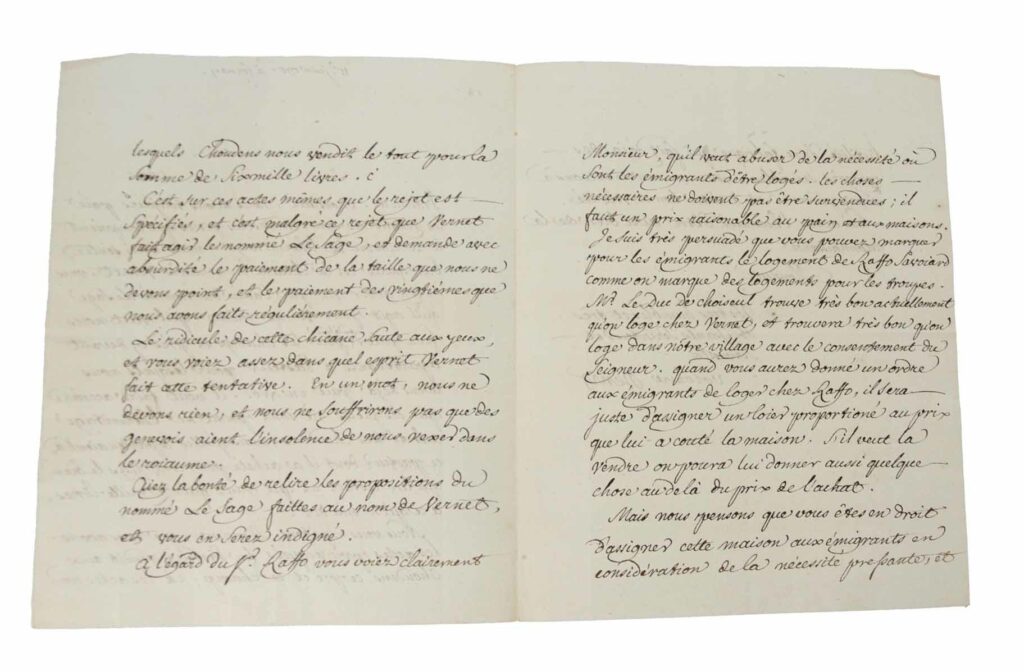 lesquels Choudens nous vendit le tout pour la
somme de Sixmille livres. c
C'est sur ces actes mêmes que le rejet est —
Spécifiés, et c'est malgré ce rejet que Vernet
fait agir le nommé Le Sage, et demande avec
absurdité le paiement de la taille que nous ne
devons point, et le paiement des vingtièmes que
nous avons faits régulièrement.
Le ridicule de cette chicane saute aux yeux,
et vous voiez assez dans quel esprit Vernet
fait cette tentative. En un mot, nous ne
devons rien, et nous ne souffrirons pas que des
genevois aient l'insolence de nous vexer dans
le roiaume.
Aiez la bonté de relire les propositions du
nommé Le Sage faittes au nom de Vernet,
et vous en serez indigné.
A l'égard du Sr. Raffo vous voiez clairement
Monsieur, qu'il veut abuser de la nécessité où
sont les émigrants d'être logés. les choses —
nécessaires ne doivent pas être survendues; il
faut un prix raisonable au pain et aux maisons.
Je suis très persuadé que vous pouvez marquer
pour les émigrants le logement de Raffo Savoiard
comme on marque des logements pour les troupes.
Mr. Le Duc de choiseul trouve très bon actuellement
qu'on loge chez Vernet, et trouvera très bon qu'on
loge dans notre village avec le consentement du
Seigneur. quand vous aurez donné un ordre
aux émigrants de loger chez Raffo, il sera —
juste d'assigner un loier proportioné au prix
que lui a couté la maison. S'il veut la
vendre on poura lui donner aussi quelque —
chose au delà du prix de l'achat.
Mais nous pensons que vous êtes en droit
d'assigner cette maison aux émigrants en
considération de la nécessité pressante, et